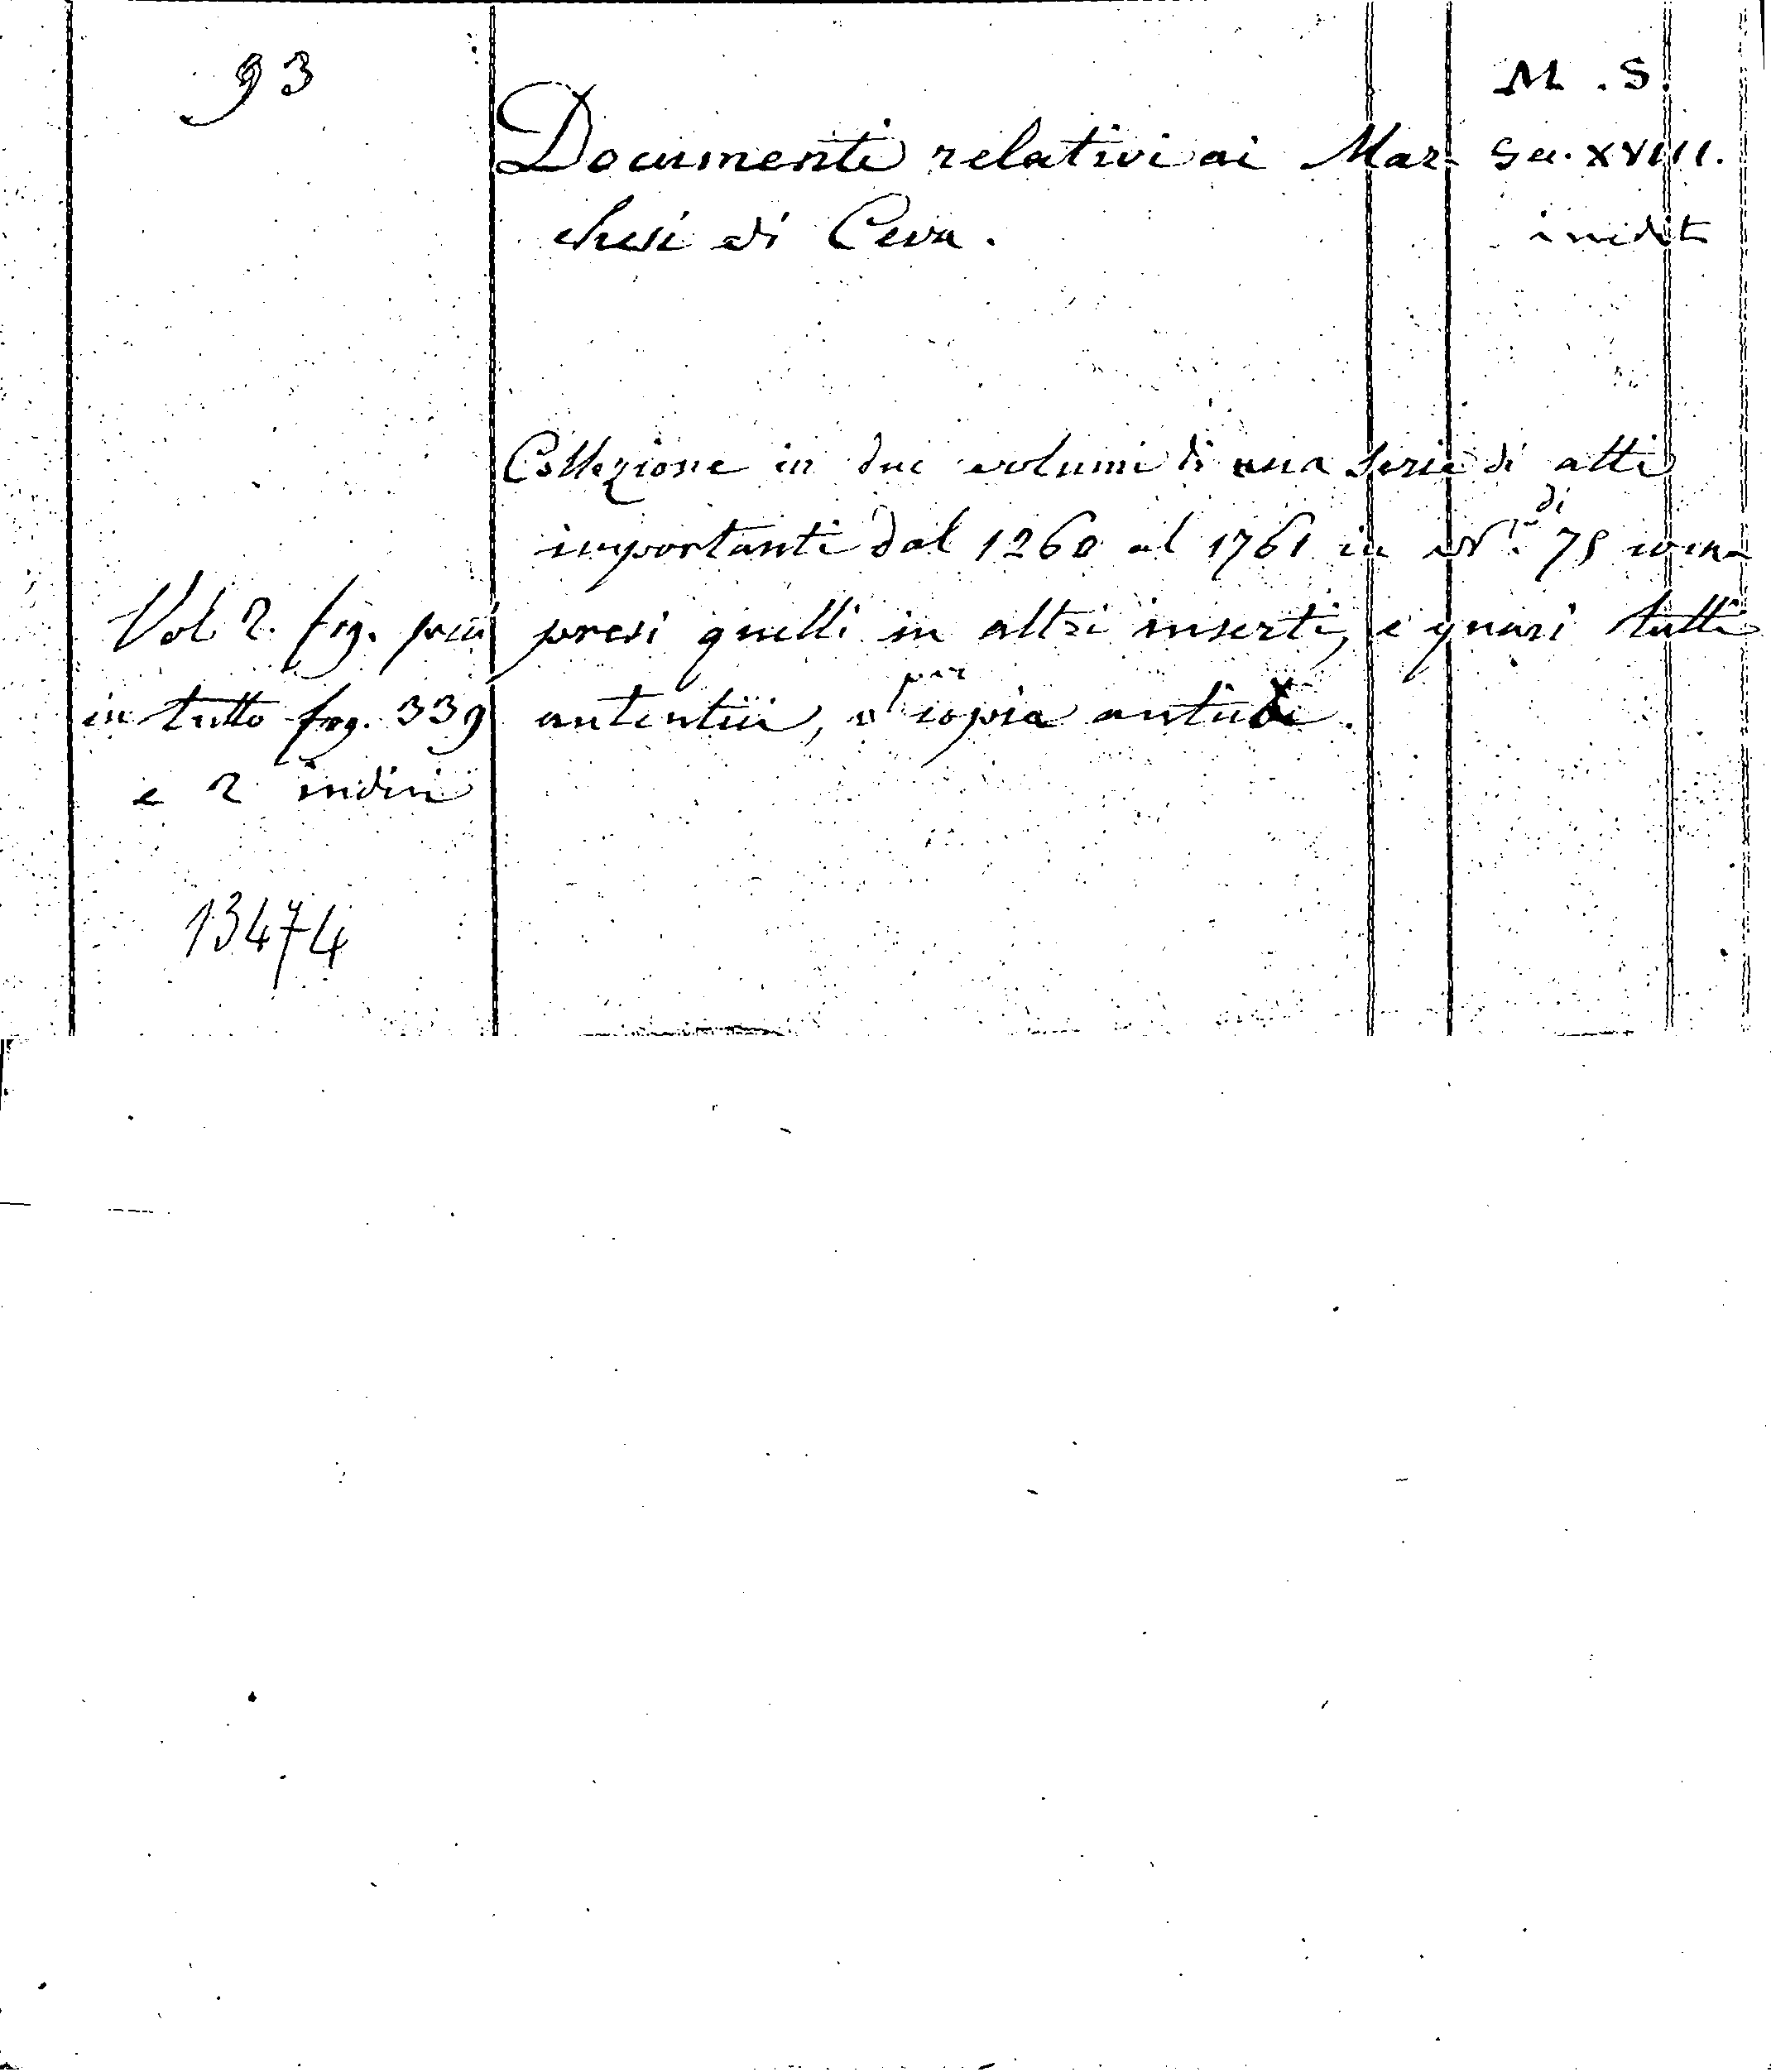 93
M. S.
Documenti relativi ai Mar- Sec. XVIII.
chesi di Ceva. inedit
Collezione in due volumi di una serie di atti
importanti dal 1260 al 1761 in N.° di 75 com-
Vol 2. fog. picc presi quelli in altri inserti, e quasi tutti
in tutto fog. 339 autentici, o per copia antica.
e 2 indici
13474